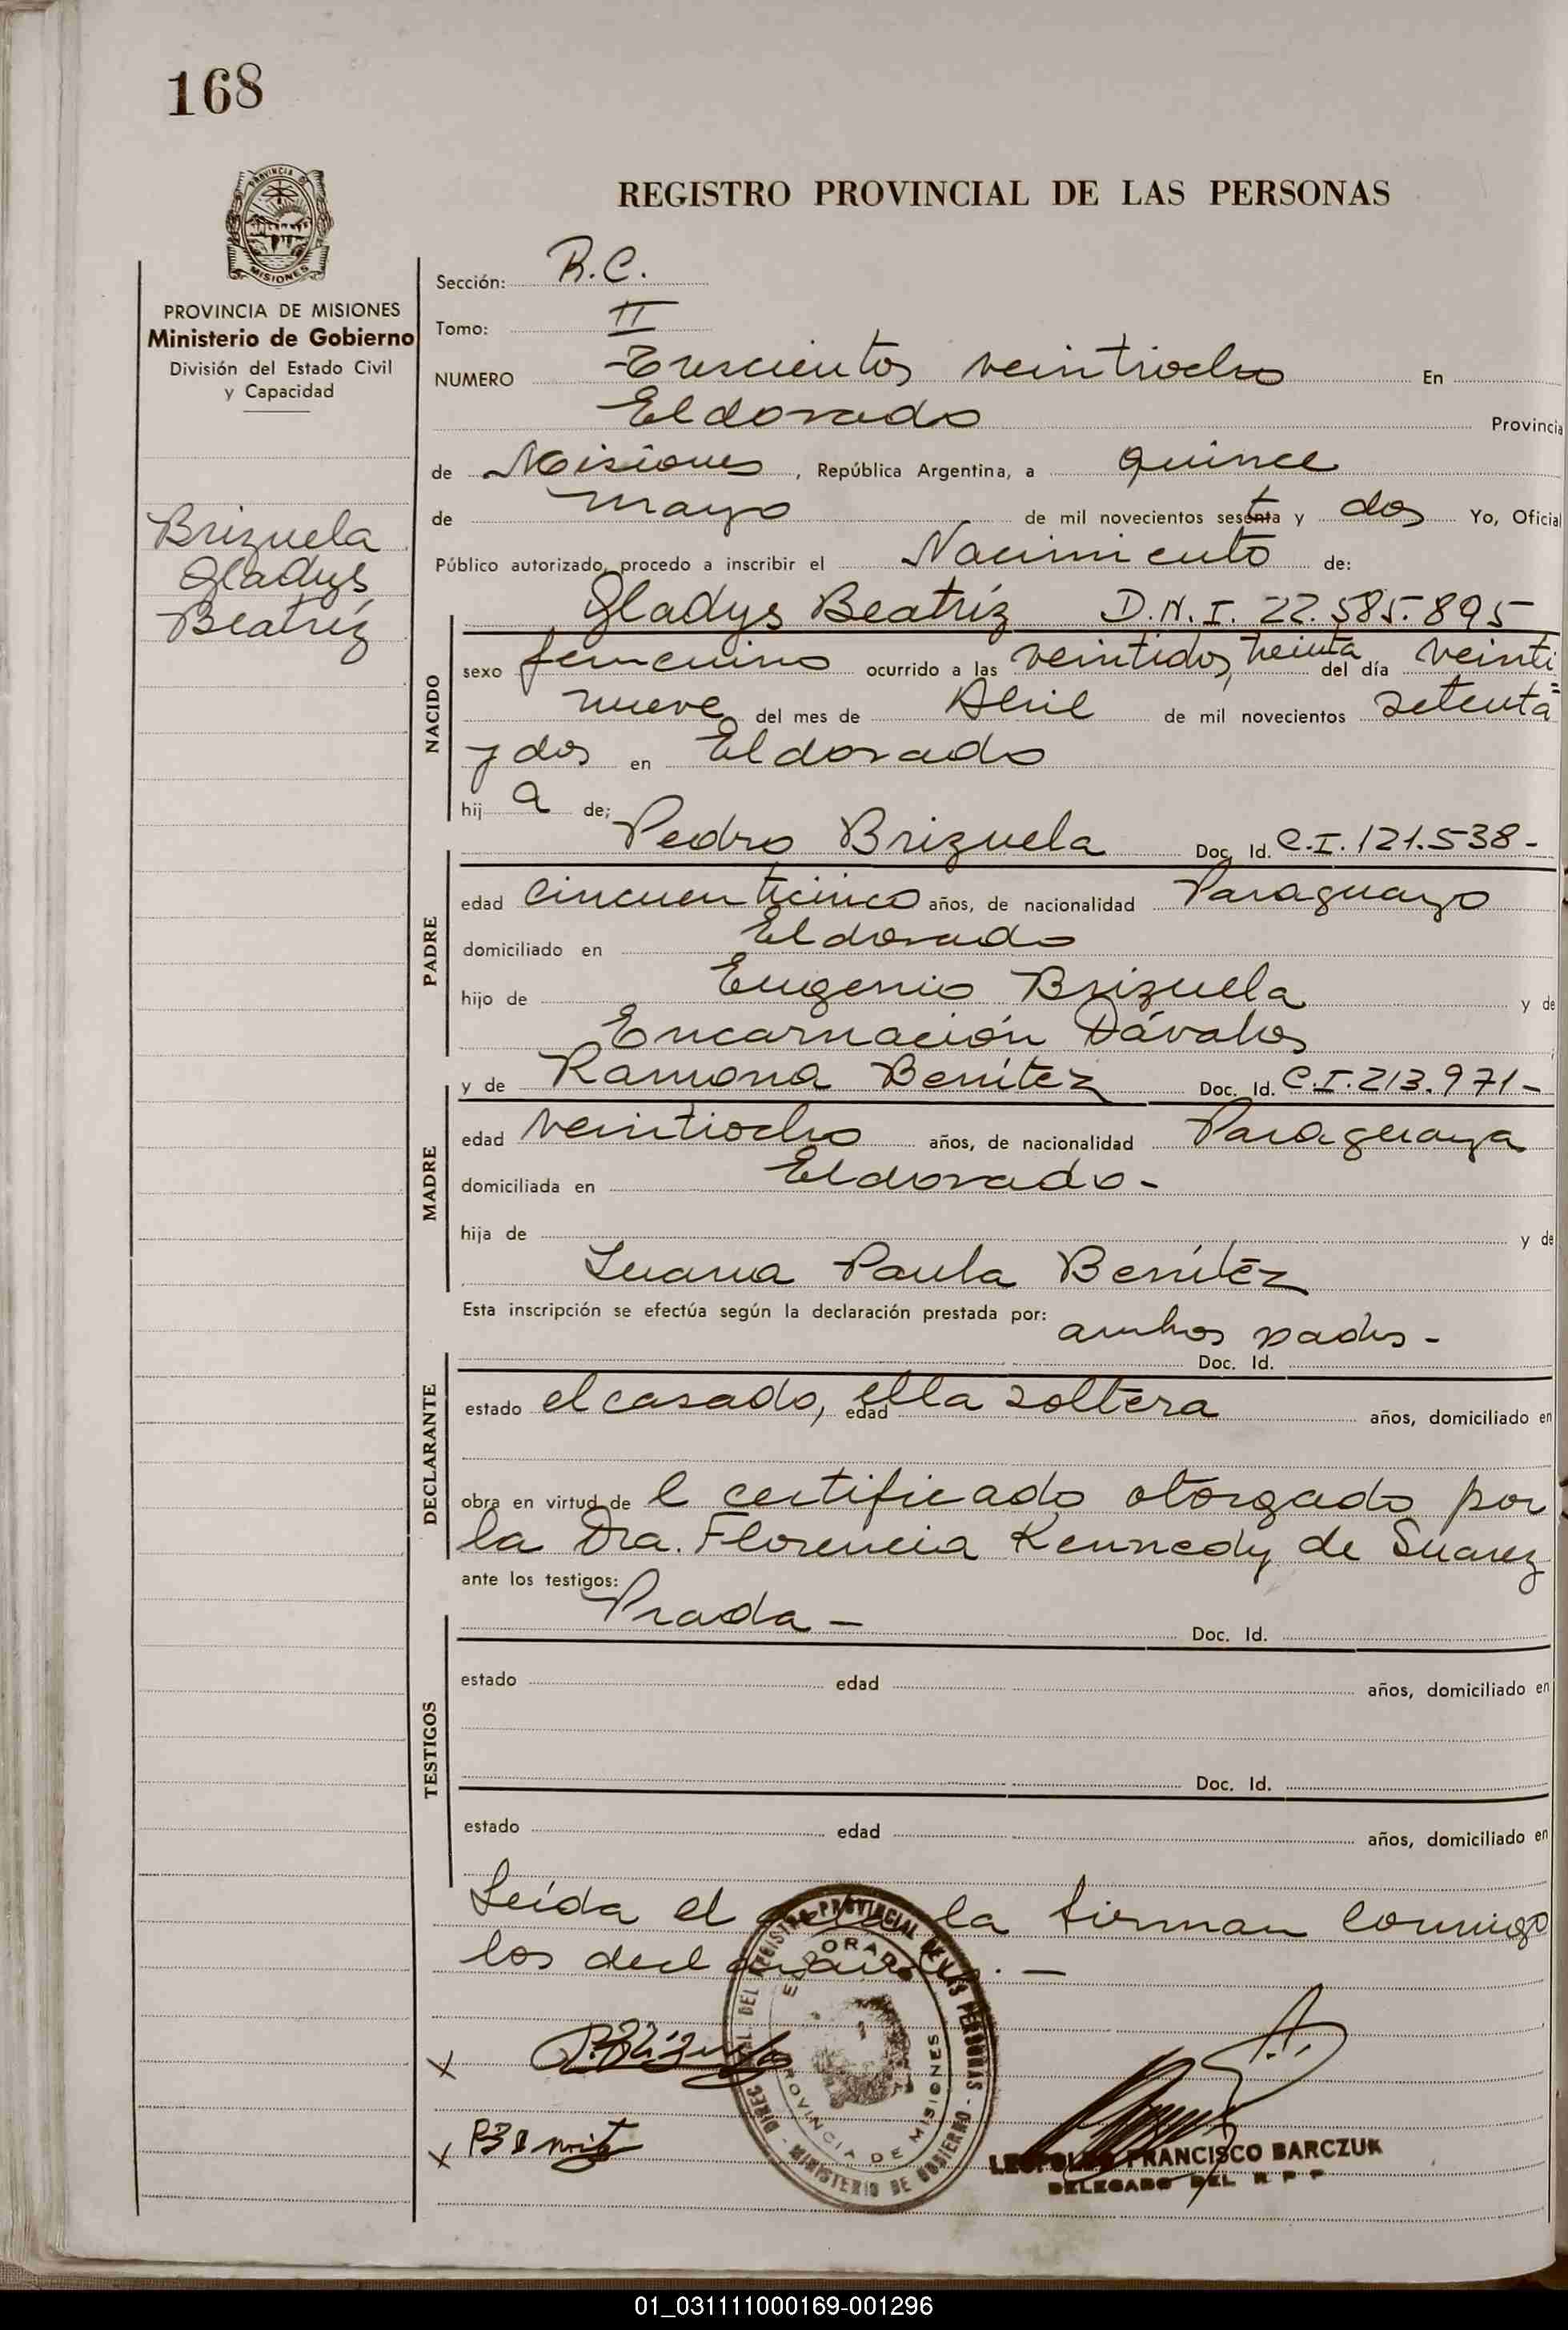 168
PROVINCIA DE
MISIONES
PROVINCIA DE MISIONES
Ministerio de Gobierno
División del Estado Civil
y Capacidad
Brizuela
Gladys
Beatríz
REGISTRO PROVINCIAL DE LAS PERSONAS
Sección: R.C.
Tomo: II
NUMERO Trescientos veintiocho En
Eldorado Provincia
de Misiones, República Argentina, a quince
de mayo de mil novecientos sesenta y dos Yo, Oficial
Público autorizado, procedo a inscribir el Nacimiento de:
NACIDO
Gladys Beatríz D.N.I. 22.585.895
sexo femenino ocurrido a las veintidos, treinta del día veinti
nueve del mes de Abril de mil novecientos setenta
y dos en Eldorado
hij a de;
PADRE
Pedro Brizuela Doc. Id. C.I. 121.538-
edad cincuenticinco años, de nacionalidad Paraguayo
domiciliado en Eldorado
hijo de Eugenio Brizuela y de
Encarnación Dávalos
MADRE
y de Ramona Benítez Doc. Id. C.I. 213.971-
edad veintiocho años, de nacionalidad Paraguaya
domiciliada en Eldorado-
hija de y de
Juana Paula Benítez
Esta inscripción se efectúa según la declaración prestada por: ambos padres -
DECLARANTE
Doc. Id.
estado el casado, edad ella soltera años, domiciliado en
obra en virtud de l certificado otorgado por
la Dra. Florencia Kennedy de Suarez
ante los testigos:
TESTIGOS
Prada - Doc. Id.
estado edad años, domiciliado en
Doc. Id.
estado edad años, domiciliado en
Leída el acta la firman conmigo
los declarantes. -
DIREC. GRAL. DEL REGISTRO PROVINCIAL DE LAS PERSONAS - MINISTERIO DE GOBIERNO -
ELDORADO
PROVINCIA DE MISIONES
x P. Brizuela
x R Benitez
LEOPOLDO FRANCISCO BARCZUK
DELEGADO DEL R P P
01_031111000169-001296